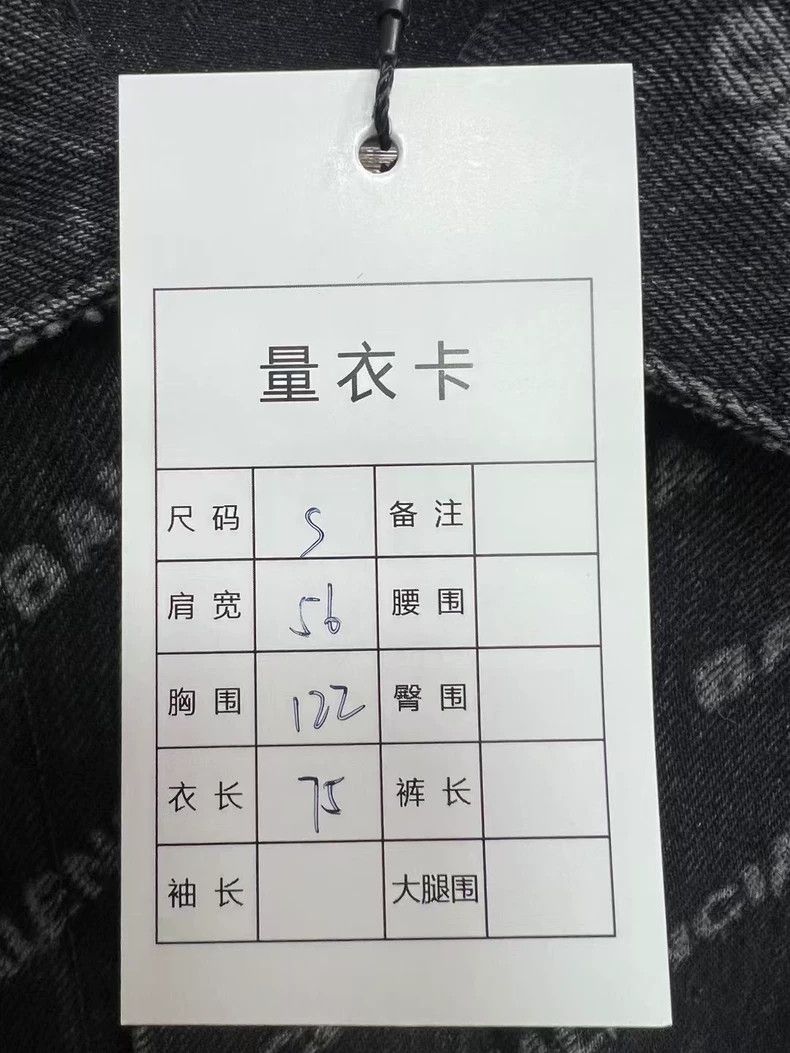 量衣卡
尺码 S 备注
肩宽 56 腰围
胸围 122 臀围
衣长 75 裤长
袖长 大腿围